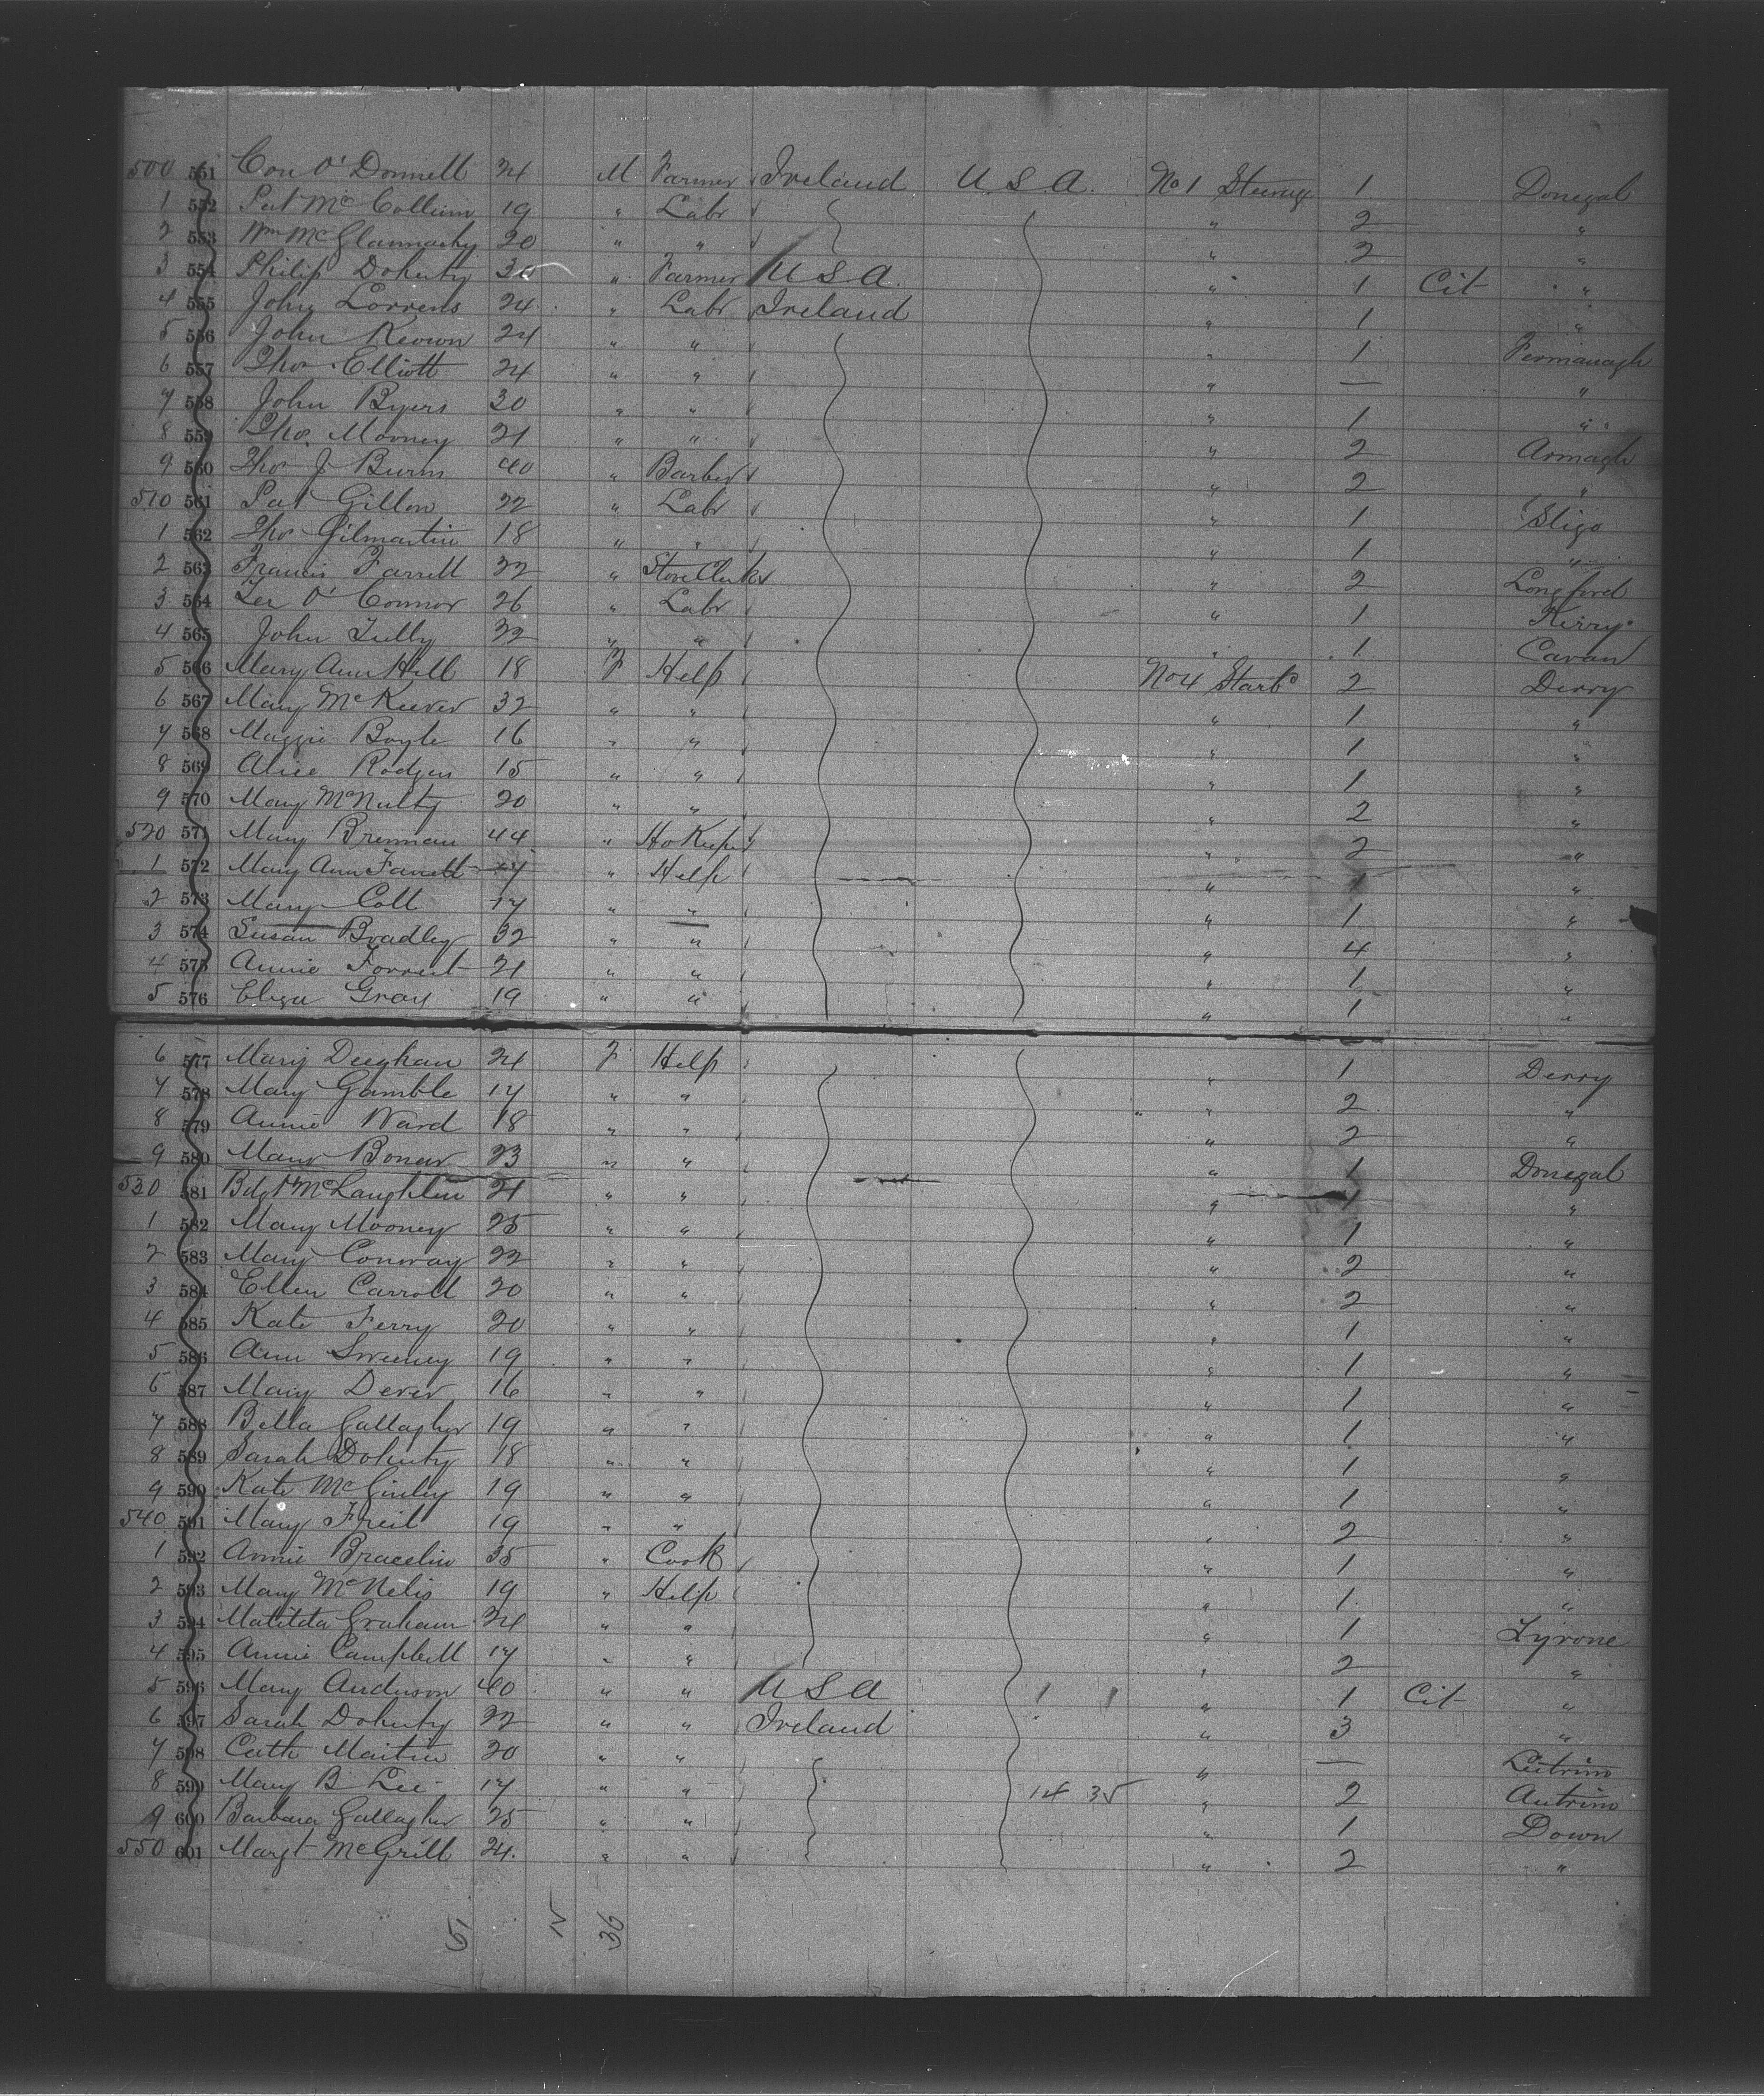 500 551 Con O'Donnell 24 M Farmer Ireland U S A. No 1 Steerage 1 Donegal
1 552 Pat McCollum 19 " Labr " 2 "
2 553 Wm McGlannachy 20 " " " 2 "
3 554 Philip Doherty 30 " Farmer U S A. " 1 Cit "
4 555 John Lorrens 24 " Labr Ireland " 1 "
5 556 John Keown 24 " " " 1 Fermanagh
6 557 Thos Elliott 24 " " " — "
7 558 John Byers 30 " " " 1 "
8 559 Thos. Mooney 21 " " " 2 Armagh
9 560 Thos J Burns 40 " Barber " 2 "
510 561 Pat Gillon 22 " Labr " 1 Sligo
1 562 Thos Gilmartin 18 " " " 1 "
2 563 Francis Farrell 22 " Store Clerk " 2 Longford
3 564 O'Connor 26 " Labr " 1 Kerry
4 565 John Tully 32 " " " 1 Cavan
5 566 Mary Ann Hill 18 F Help No 4 Starbd 2 Derry
6 567 Mary McKeever 32 " " " 1 "
7 568 Maggie Boyle 16 " " " 1 "
8 569 Alice Rodgers 15 " " " 1 "
9 570 Mary McNulty 20 " " " 2 "
520 571 Mary Brennan 44 " HoKeeper " 2 "
1 572 Mary Ann Farrell 17 " Help " 1 "
2 573 Mary Coll 17 " " " 1 "
3 574 Susan Bradley 32 " " " 4 "
4 575 Annie Forrest 21 " " " 1 "
5 576 Eliza Gray 19 " " " 1 "
6 577 Mary Deeghan 24 F Help " 1 Derry
7 578 Mary Gamble 17 " " " " 2 "
8 579 Annie Ward 18 " " " 2 "
9 580 Mary Boner 23 " " " 1 Donegal
530 581 Bdgt McLaughlin 21 " " " 1 "
1 582 Mary Mooney 25 " " " 1 "
2 583 Mary Conway 22 " " " 2 "
3 584 Ellen Carroll 20 " " " 2 "
4 585 Kate Ferry 20 " " " 1 "
5 586 Ann Sweeney 19 " " " 1 "
6 587 Mary Dever 16 " " " 1 "
7 588 Bella Gallagher 19 " " " 1 "
8 589 Sarah Doherty 18 " " " 1 "
9 590 Kate McGinley 19 " " " 1 "
540 591 Mary Freil 19 " " " 2 "
1 592 Annie Bracelin 35 " Cook " 1 "
2 593 Mary McNelis 19 " Help " 1 "
3 594 Matilda Graham 24 " " " 1 Tyrone
4 595 Annie Campbell 17 " " " 2 "
5 596 Mary Anderson 40 " " U S A 1 1 " 1 Cit "
6 597 Sarah Doherty 22 " " Ireland " 3 "
7 598 Cath Martin 20 " " " — Leitrim
8 599 Mary B Lee 17 " " 14 35 " 2 Antrim
9 600 Barbara Gallagher 25 " " " 1 Down
550 601 Margt McGrill 24. " " " 2 "
51 N 36